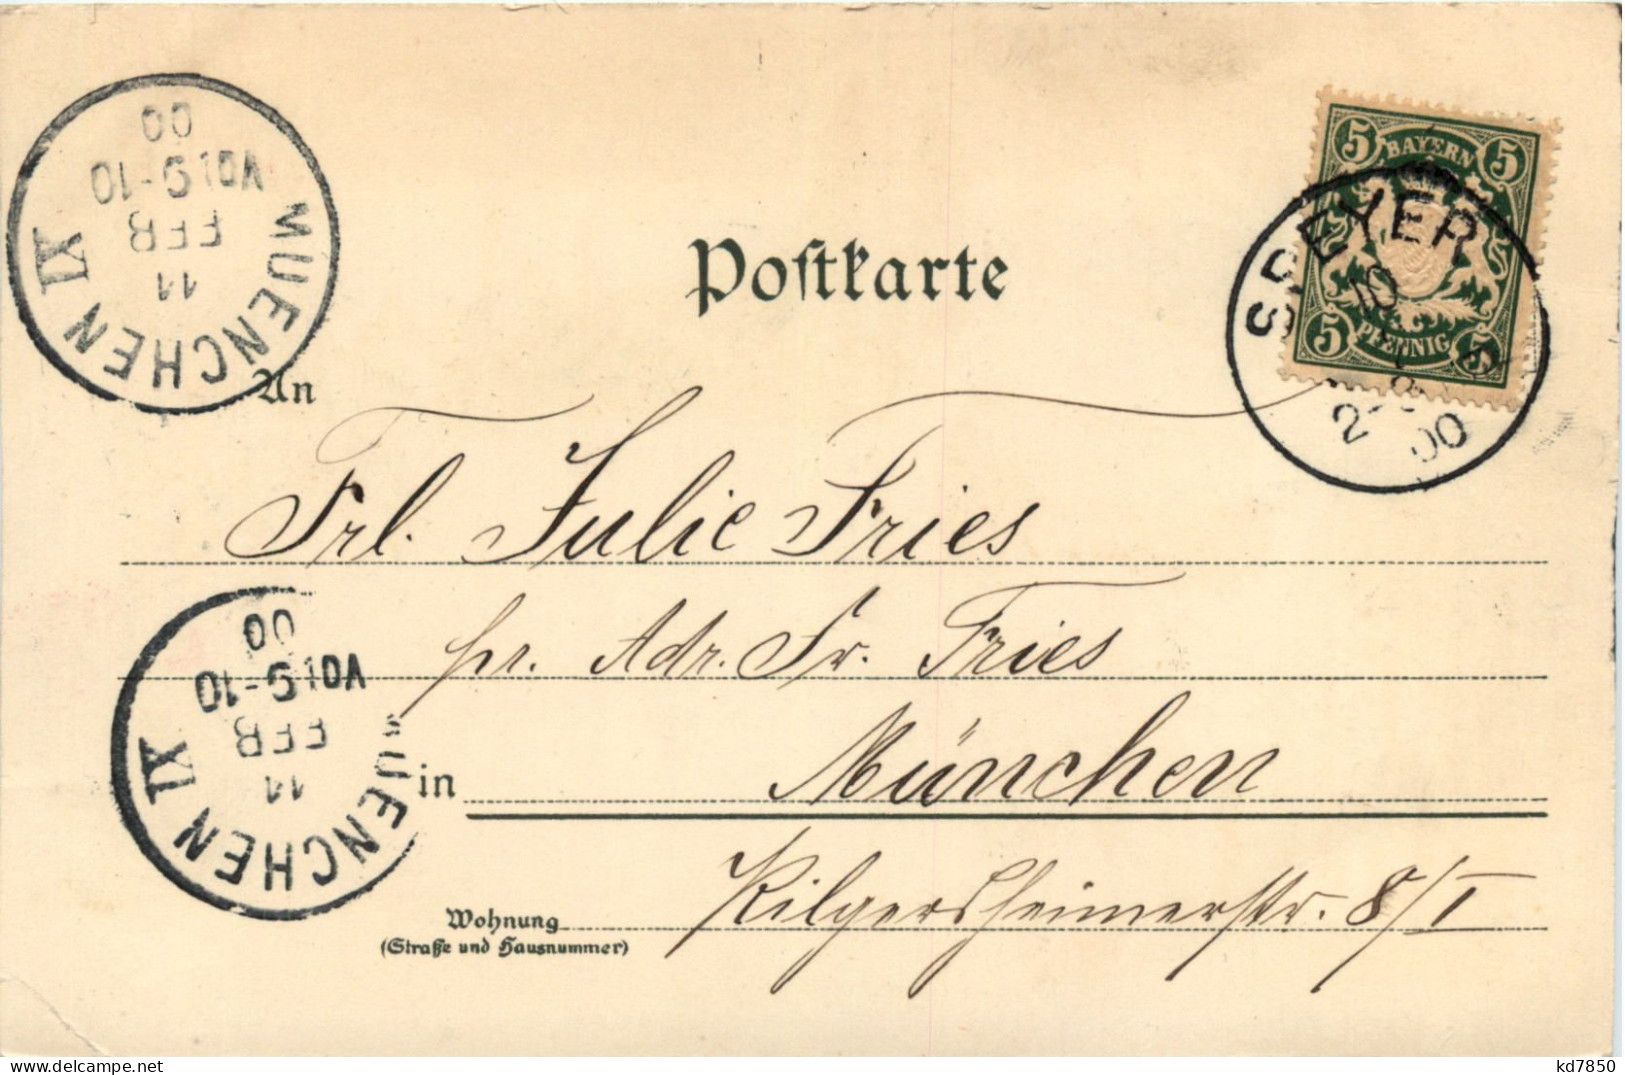 MUENCHEN IX
11
FEB
VOR 9-10
00
5 BAYERN 5
5 PFENNIG 5
SPEYER
10
00
Postkarte
An
Frl. Julie Fries
pr. Adr. Fr. Fries
MUENCHEN IX
11
FEB
VOR 9-10
00
in München
Wohnung Hilgersheimerstr. 8/I
(Straße und Hausnummer)
kd7850